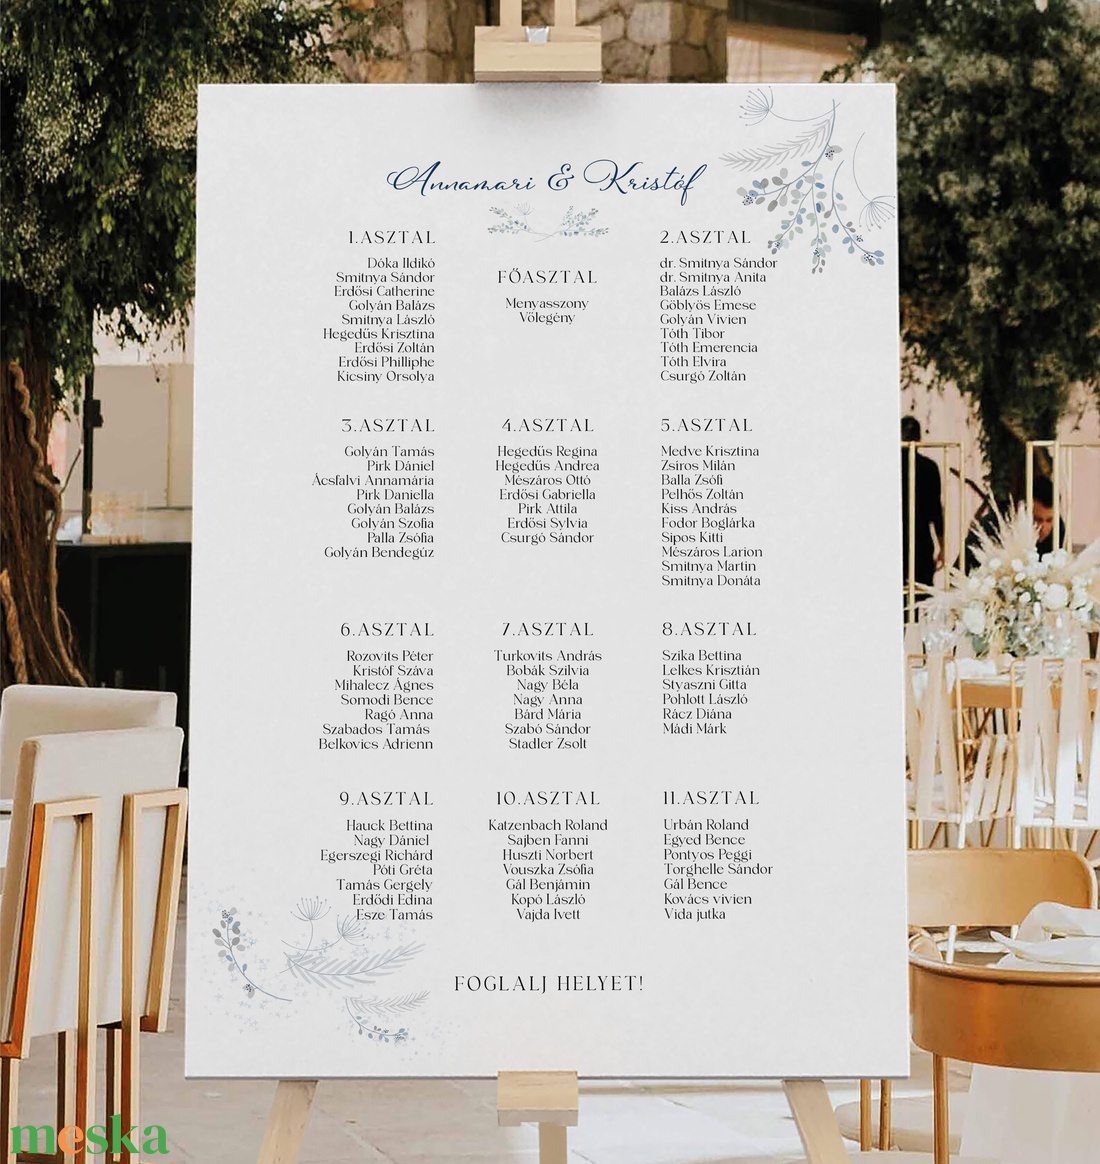 Annamari & Kristóf
1.ASZTAL
Dóka Ildikó
Smitnya Sándor
Erdősi Catherine
Golyán Balázs
Smitnya László
Hegedűs Krisztina
Erdősi Zoltán
Erdősi Philliphe
Kicsiny Orsolya
FŐASZTAL
Menyasszony
Vőlegény
2.ASZTAL
dr. Smitnya Sándor
dr. Smitnya Anita
Balázs László
Göblyös Emese
Golyán Vivien
Tóth Tibor
Tóth Emerencia
Tóth Elvira
Csurgó Zoltán
3.ASZTAL
Golyán Tamás
Pirk Dániel
Ácsfalvi Annamária
Pirk Daniella
Golyán Balázs
Golyán Szofia
Palla Zsófia
Golyán Bendegúz
4.ASZTAL
Hegedűs Regina
Hegedűs Andrea
Mészáros Ottó
Erdősi Gabriella
Pirk Attila
Erdősi Sylvia
Csurgó Sándor
5.ASZTAL
Medve Krisztina
Zsiros Milán
Balla Zsófi
Pelhős Zoltán
Kiss András
Fodor Boglárka
Sipos Kitti
Mészáros Larion
Smitnya Martin
Smitnya Donáta
6.ASZTAL
Rozovits Péter
Kristóf Száva
Mihalecz Ágnes
Somodi Bence
Ragó Anna
Szabados Tamás
Belkovics Adrienn
7.ASZTAL
Turkovits András
Bobák Szilvia
Nagy Béla
Nagy Anna
Bárd Mária
Szabó Sándor
Stadler Zsolt
8.ASZTAL
Szika Bettina
Lelkes Krisztián
Styaszni Gitta
Pohlott László
Rácz Diána
Mádi Márk
9.ASZTAL
Hauck Bettina
Nagy Dániel
Egerszegi Richárd
Póti Gréta
Tamás Gergely
Erdődi Edina
Esze Tamás
10.ASZTAL
Katzenbach Roland
Sajben Fanni
Huszti Norbert
Vouszka Zsófia
Gál Benjámin
Kopó László
Vajda Ivett
11.ASZTAL
Urbán Roland
Egyed Bence
Pontyos Peggi
Torghelle Sándor
Gál Bence
Kovács vivien
Vida jutka
FOGLALJ HELYET!
meska